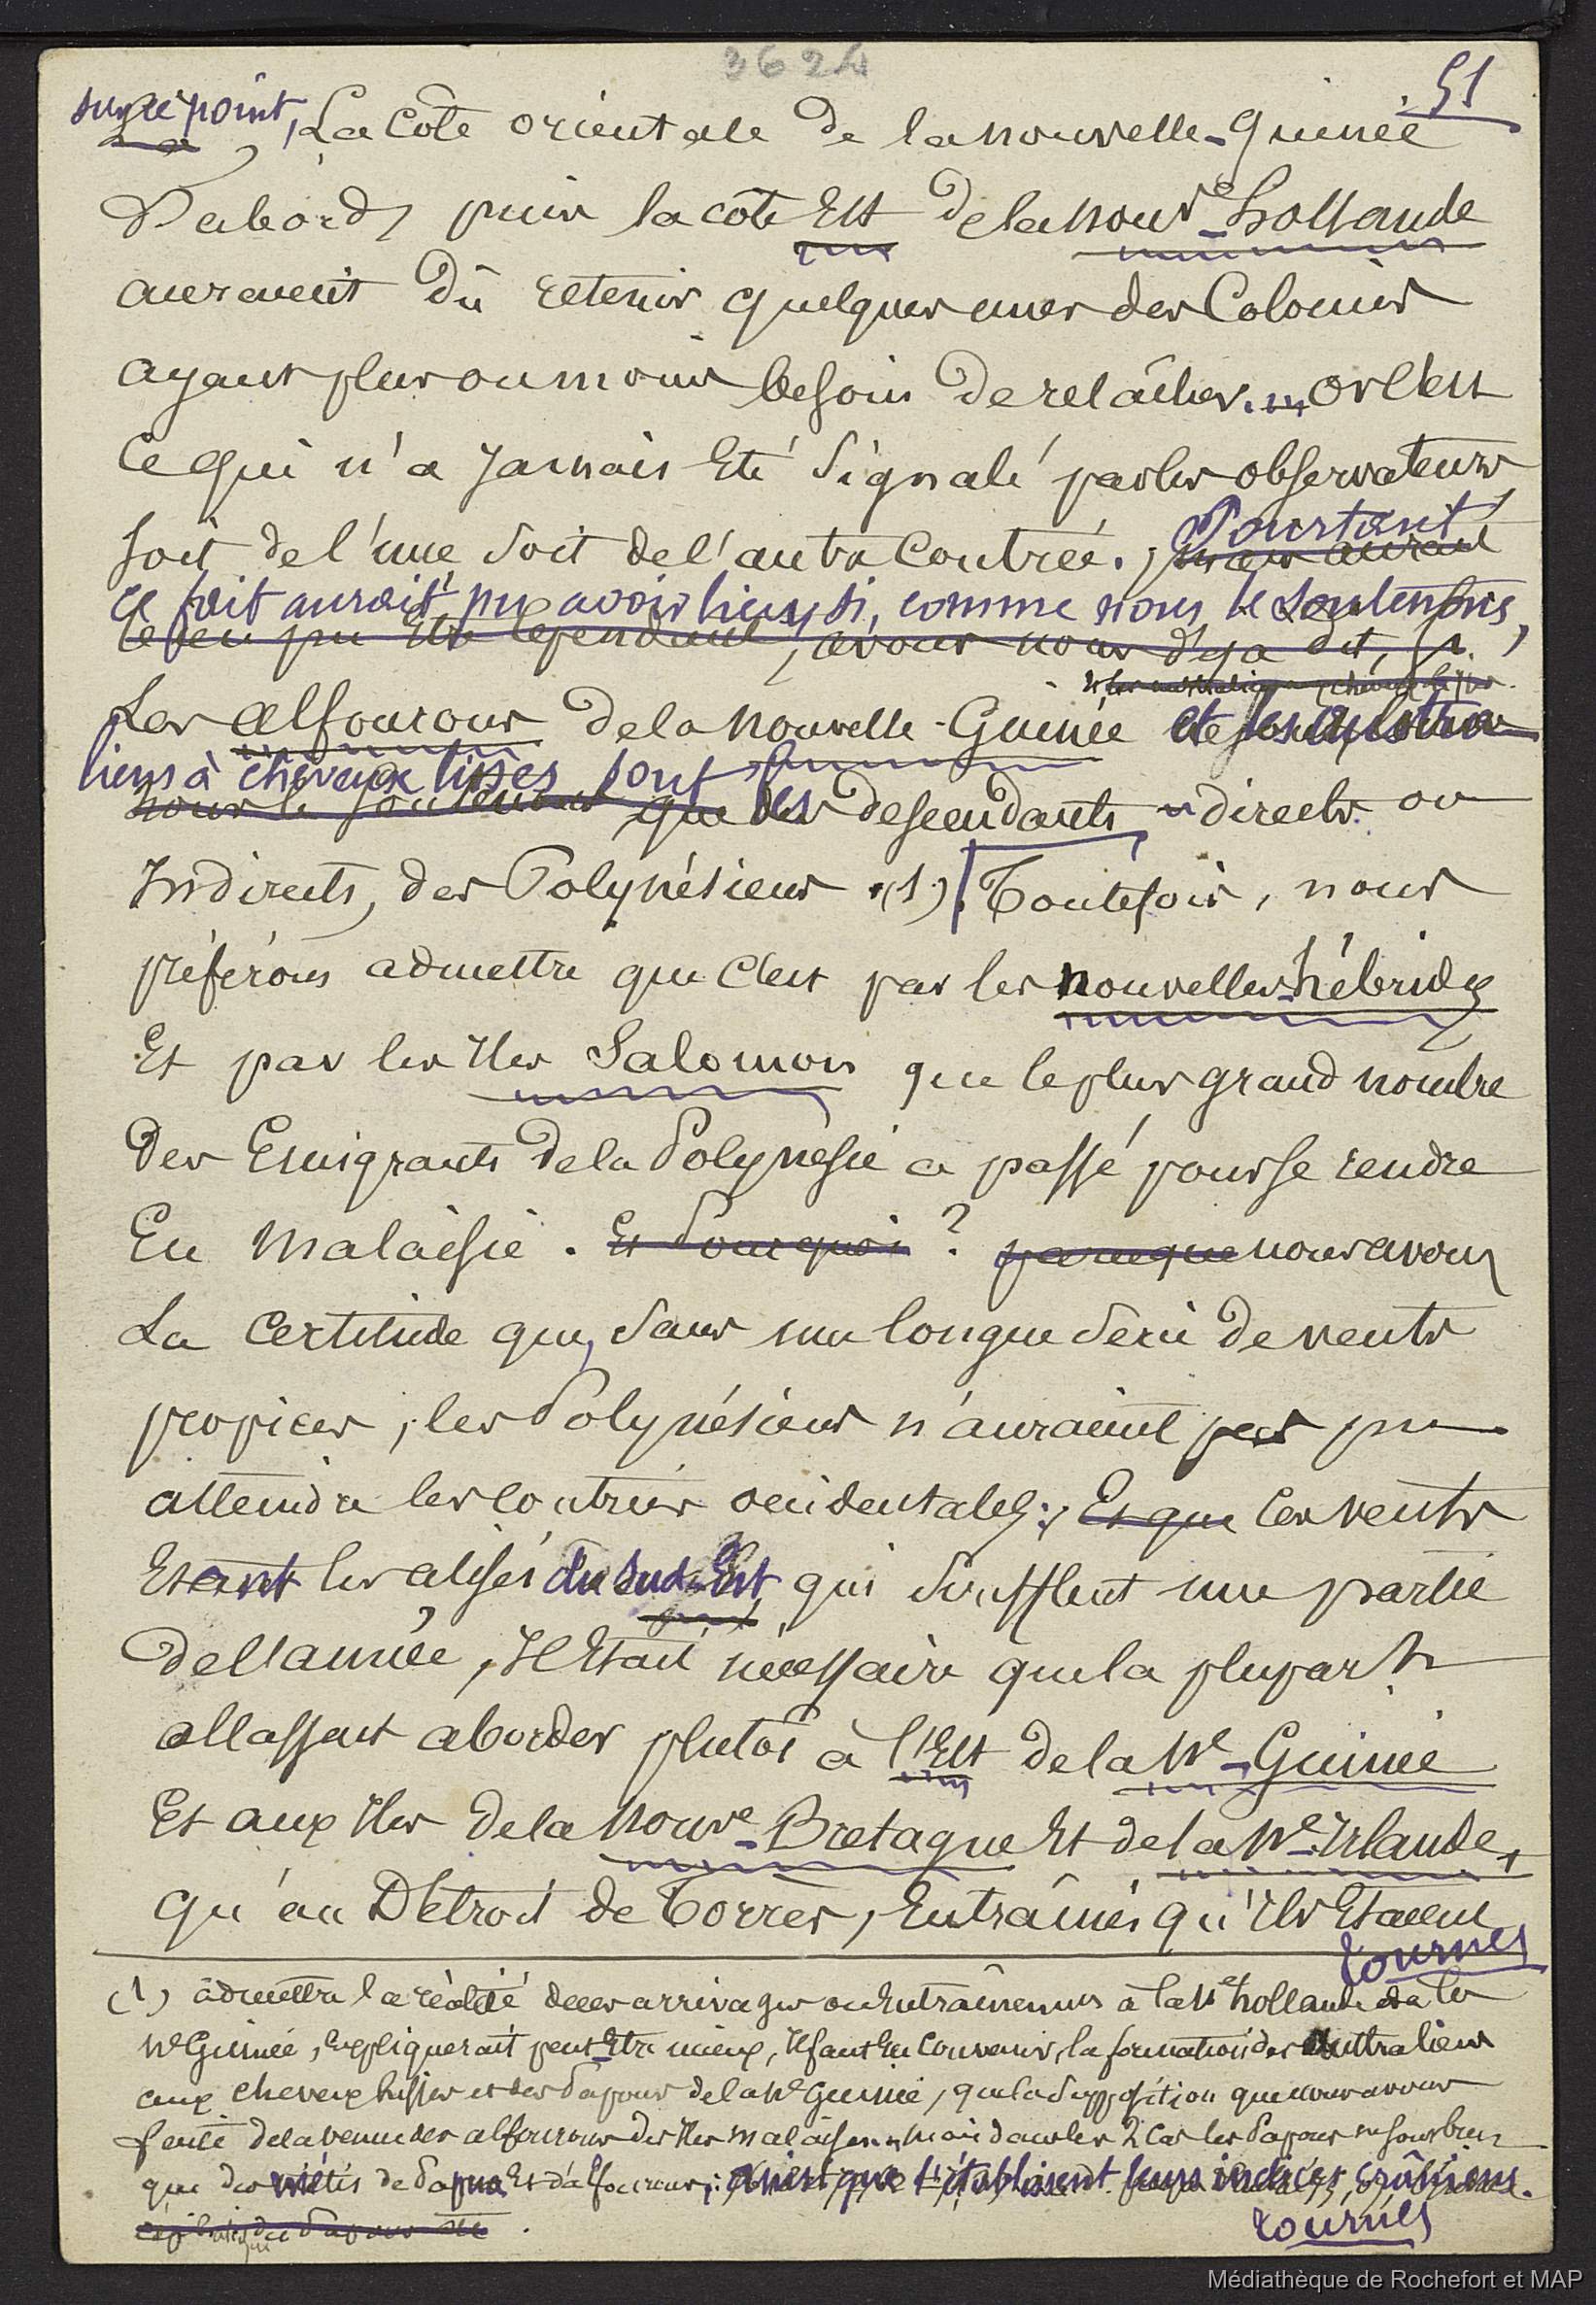 3624
51
sur ce point, La côte orientale de la nouvelle-Guinée
D'abord, puis la côte Est de la Nouve-hollande
auraient dû retenir quelques unes des Colonies
ayant plus ou moins besoin de relâcher. or c'est
ce qui n'a Jamais Eté signalé par les observateurs
soit de l'une soit de l'autre Contrée. Pourtant
ce fait aurait pu avoir lieu, si, comme nous le soutenons,
Les alfourous de la Nouvelle-Guinée et les Austra
liens à cheveux lisses sont des descendants directs ou
Indirects, des Polynésiens (1). Toutefois, nous
préférons admettre que C'est par les nouvelles-hébrides
Et par les Iles Salomon que le plus grand nombre
Des Emigrants de la Polynésie a passé pour se rendre
En Malaisie. Et Pourquoi ? parceque nous avons
La certitude que, sans une longue série de vents
propices, les Polynésiens n'auraient pas pu
atteindre les contrées occidentales; Et que Ces vents
Etant les alisés du sud-Est, qui soufflent une partie
de l'année, Il Etait nécessaire que la plupart
allassent aborder plutôt à l'Est de la Ne-Guinée
Et aux Iles de la Nouve-Bretagne Et de la Ne-Irlande,
qu'au Détroit de Torrès, Entraînés qu'ils Etaient
tournez
(1) admettre la réalité de ces arrivages ou Entraînements à la Ne hollande à la
Ne Guinée, Expliquerait peut Etre mieux, Il faut En convenir, la formation des Australiens
aux cheveux lisses et des Papous de la Ne Guinée, que la supposition que nous avons
faite de la venue des alfourous des Iles malaises dans les 2 Car les Papous ne sont bien
que des métis de Papua Et d'alfourous; ainsi que l'établissent leurs indices crâniens.
tournez
Médiathèque de Rochefort et MAP